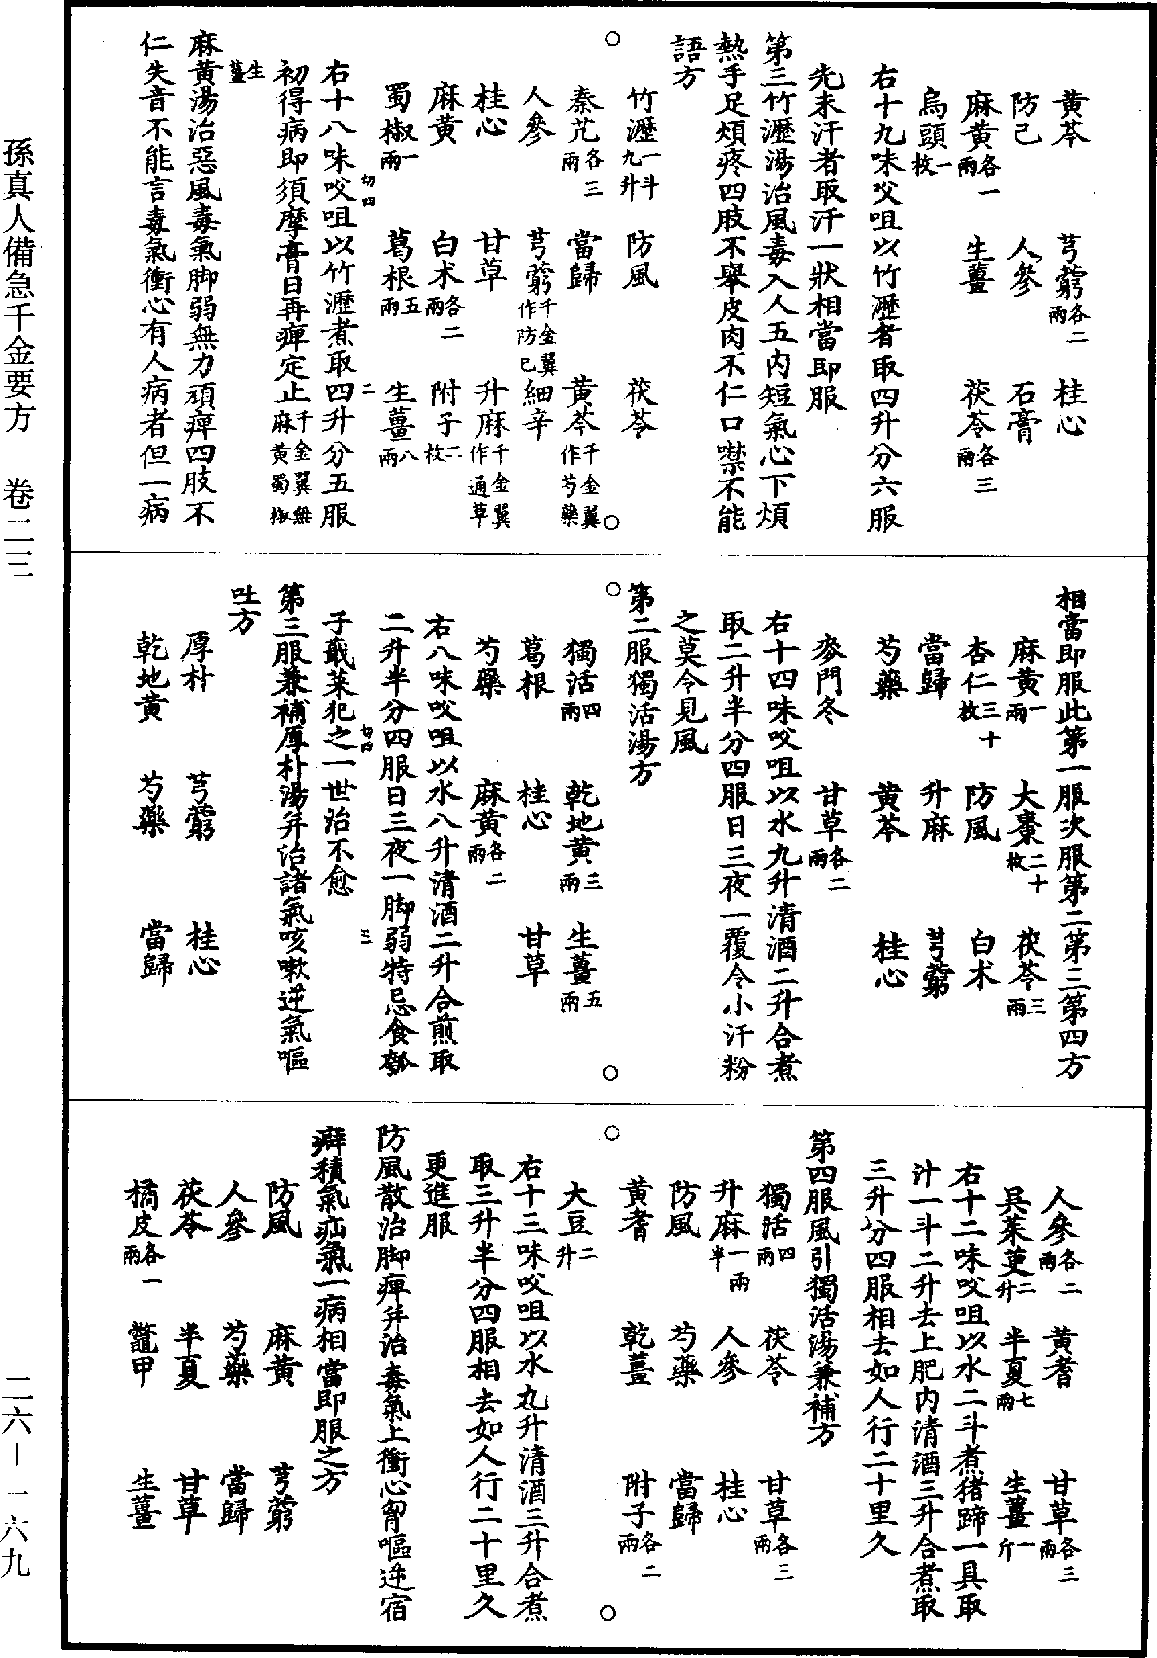 孫真人備急千金要方 卷二三
二六—一六九
黃芩 芎藭各二兩 桂心
防己 人參 石膏
麻黃各一兩 生薑 茯苓各三兩
烏頭一枚
右十九味㕮咀以竹瀝者取四升分六服
先未汗者取汗一狀相當即服
第三竹瀝湯治風毒入人五內短氣心下煩
熱手足煩疼四肢不舉皮肉不仁口噤不能
語方
竹瀝一斗九升 防風 茯苓
秦艽各三兩 當歸 黃芩千金翼作芍藥
人參 芎藭千金翼作防己 細辛
桂心 甘草 升麻千金翼作通草
麻黃 白朮各二兩 附子二枚
蜀椒一兩 葛根五兩 生薑八兩
右十八味㕮咀以竹瀝煮取四升分五服
初得病即須摩膏日再痺定止千金翼無麻黃蜀椒
生薑
麻黃湯治惡風毒氣脚弱無力頑痺四肢不
仁失音不能言毒氣衝心有人病者但一病
相當即服此第一服次服第二第三第四方
麻黃一兩 大棗二十枚 茯苓三兩
杏仁三十枚 防風 白朮
當歸 升麻 芎藭
芍藥 黃芩 桂心
麥門冬 甘草各二兩
右十四味㕮咀以水九升清酒二升合煮
取二升半分四服日三夜一覆令小汗粉
之莫令見風
第二服獨活湯方
獨活四兩 乾地黃三兩 生薑五兩
葛根 桂心 甘草
芍藥 麻黃各二兩
右八味㕮咀以水八升清酒二升合煎取
二升半分四服日三夜一脚弱特忌食瓠
子蕺菜犯之一世治不愈
第三服兼補厚朴湯并治諸氣咳嗽逆氣嘔
吐方
厚朴 芎藭 桂心
乾地黃 芍藥 當歸
人參各二兩 黃耆 甘草各三兩
吳茱萸二升 半夏七兩 生薑一斤
右十二味㕮咀以水二斗煮猪蹄一具取
汁一斗二升去上肥內清酒三升合煮取
三升分四服相去如人行二十里久
第四服風引獨活湯兼補方
獨活四兩 茯苓 甘草各三兩
升麻一兩半 人參 桂心
防風 芍藥 當歸
黃耆 乾薑 附子各二兩
大豆二升
右十三味㕮咀以水九升清酒三升合煮
取三升半分四服相去如人行二十里久
更進服
防風散治脚痺并治毒氣上衝心胷嘔逆宿
癖積氣疝氣一病相當即服之方
防風 麻黃 芎藭
人參 芍藥 當歸
茯苓 半夏 甘草
橘皮各一兩 鼈甲 生薑